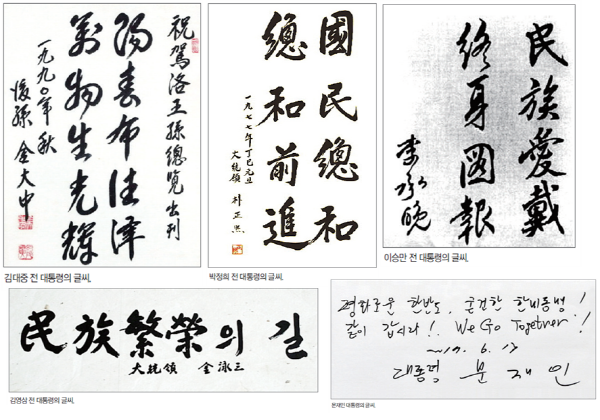 祝駕洛王孫總覽出刊
陽春布德澤
萬物生光輝
一九九〇年 秋
後孫 金大中
김대중 전 대통령의 글씨.
國民總和
總和前進
一九七七年 丁巳 元旦
大統領 朴正熙
박정희 전 대통령의 글씨.
民族愛戴
終身圖報
李承晩
이승만 전 대통령의 글씨.
民族繁榮의 길
大統領 金泳三
김영삼 전 대통령의 글씨.
평화로운 한반도, 굳건한 한미동맹!
같이 갑시다!. We Go Together!
2017. 6. 13
대통령 문재인
문재인 대통령의 글씨.